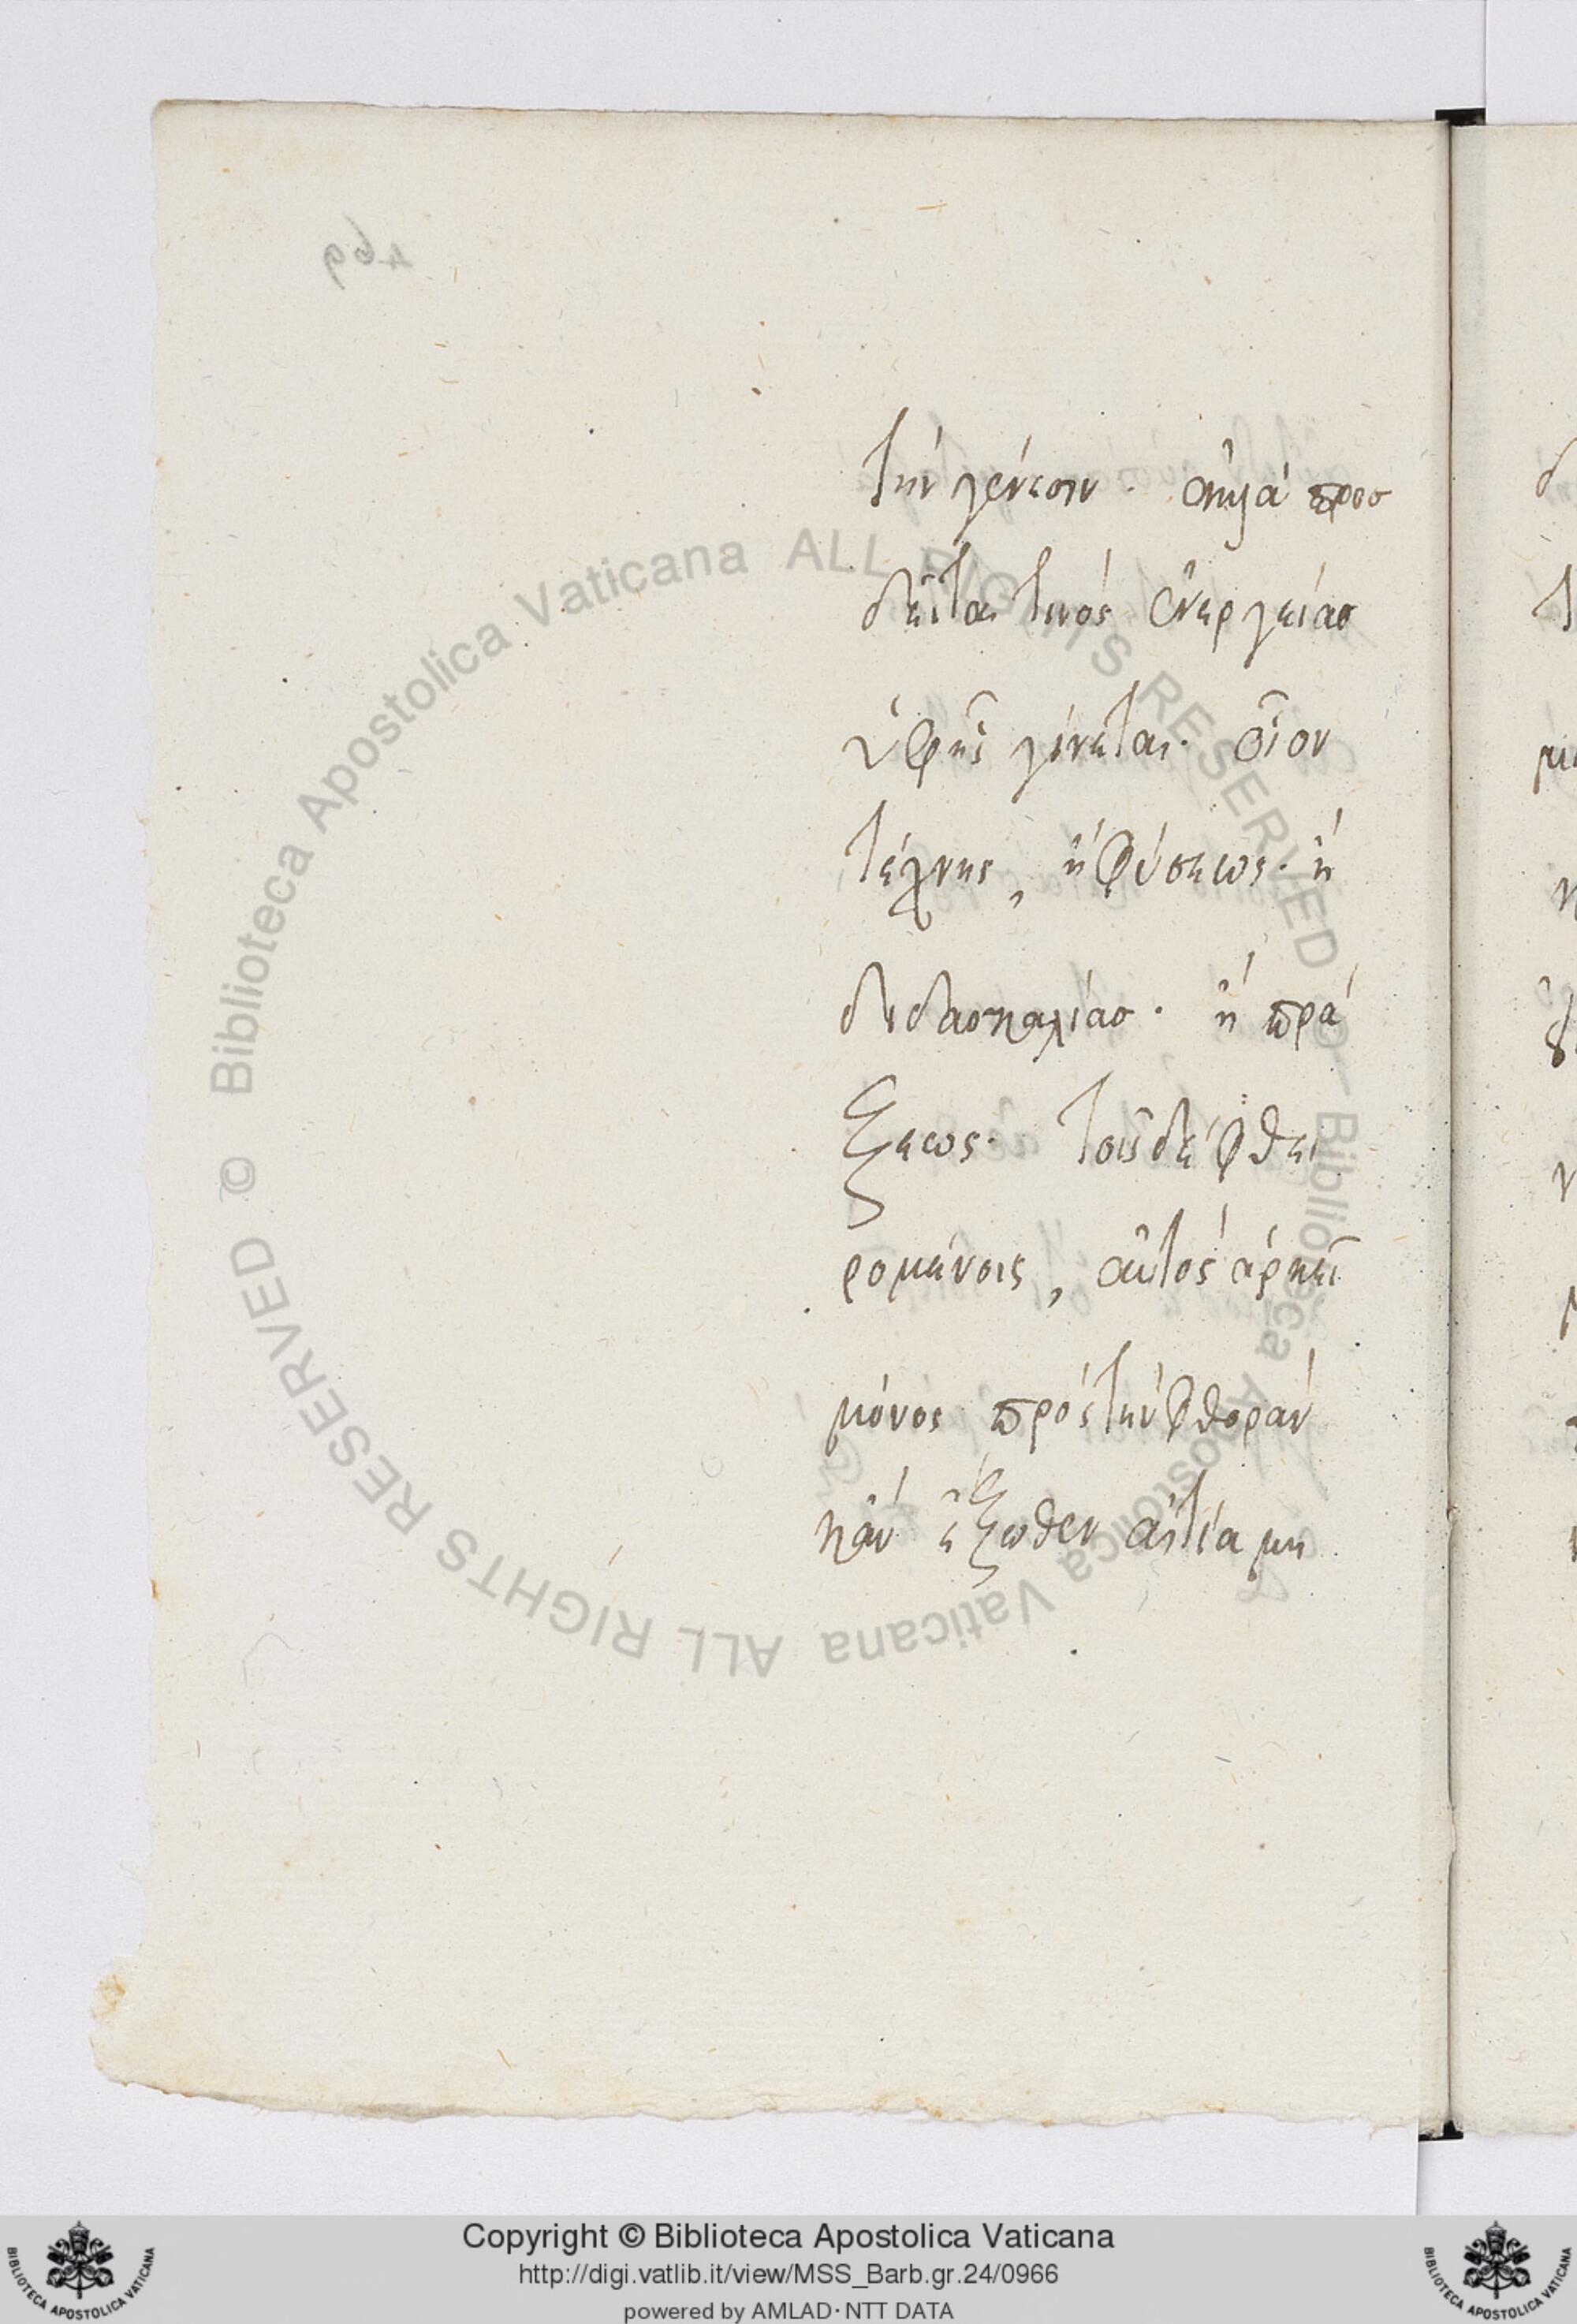 τὴν γένεσιν. ἀλλὰ προσ
δεῖται τινὸς ἐνεργείασ
ὑφῆς γίνεται. οἷον
τέχνης, ἢ φύσεως. ἢ
διδασκαλίασ. ἢ πρά
ξεως. τοῖς δὲ φθει
ρομένοις, αὐτὸς ἀρκεῖ
μόνος πρὸς τὴν φθορὰν
κἂν ἔξωθεν αἰτία μη
469
Biblioteca Apostolica Vaticana ALL RIGHTS RESERVED © Biblioteca Apostolica Vaticana ALL RIGHTS RESERVED ©
Copyright © Biblioteca Apostolica Vaticana
http://digi.vatlib.it/view/MSS_Barb.gr.24/0966
powered by AMLAD·NTT DATA
BIBLIOTECA APOSTOLICA VATICANA
BIBLIOTECA APOSTOLICA VATICANA